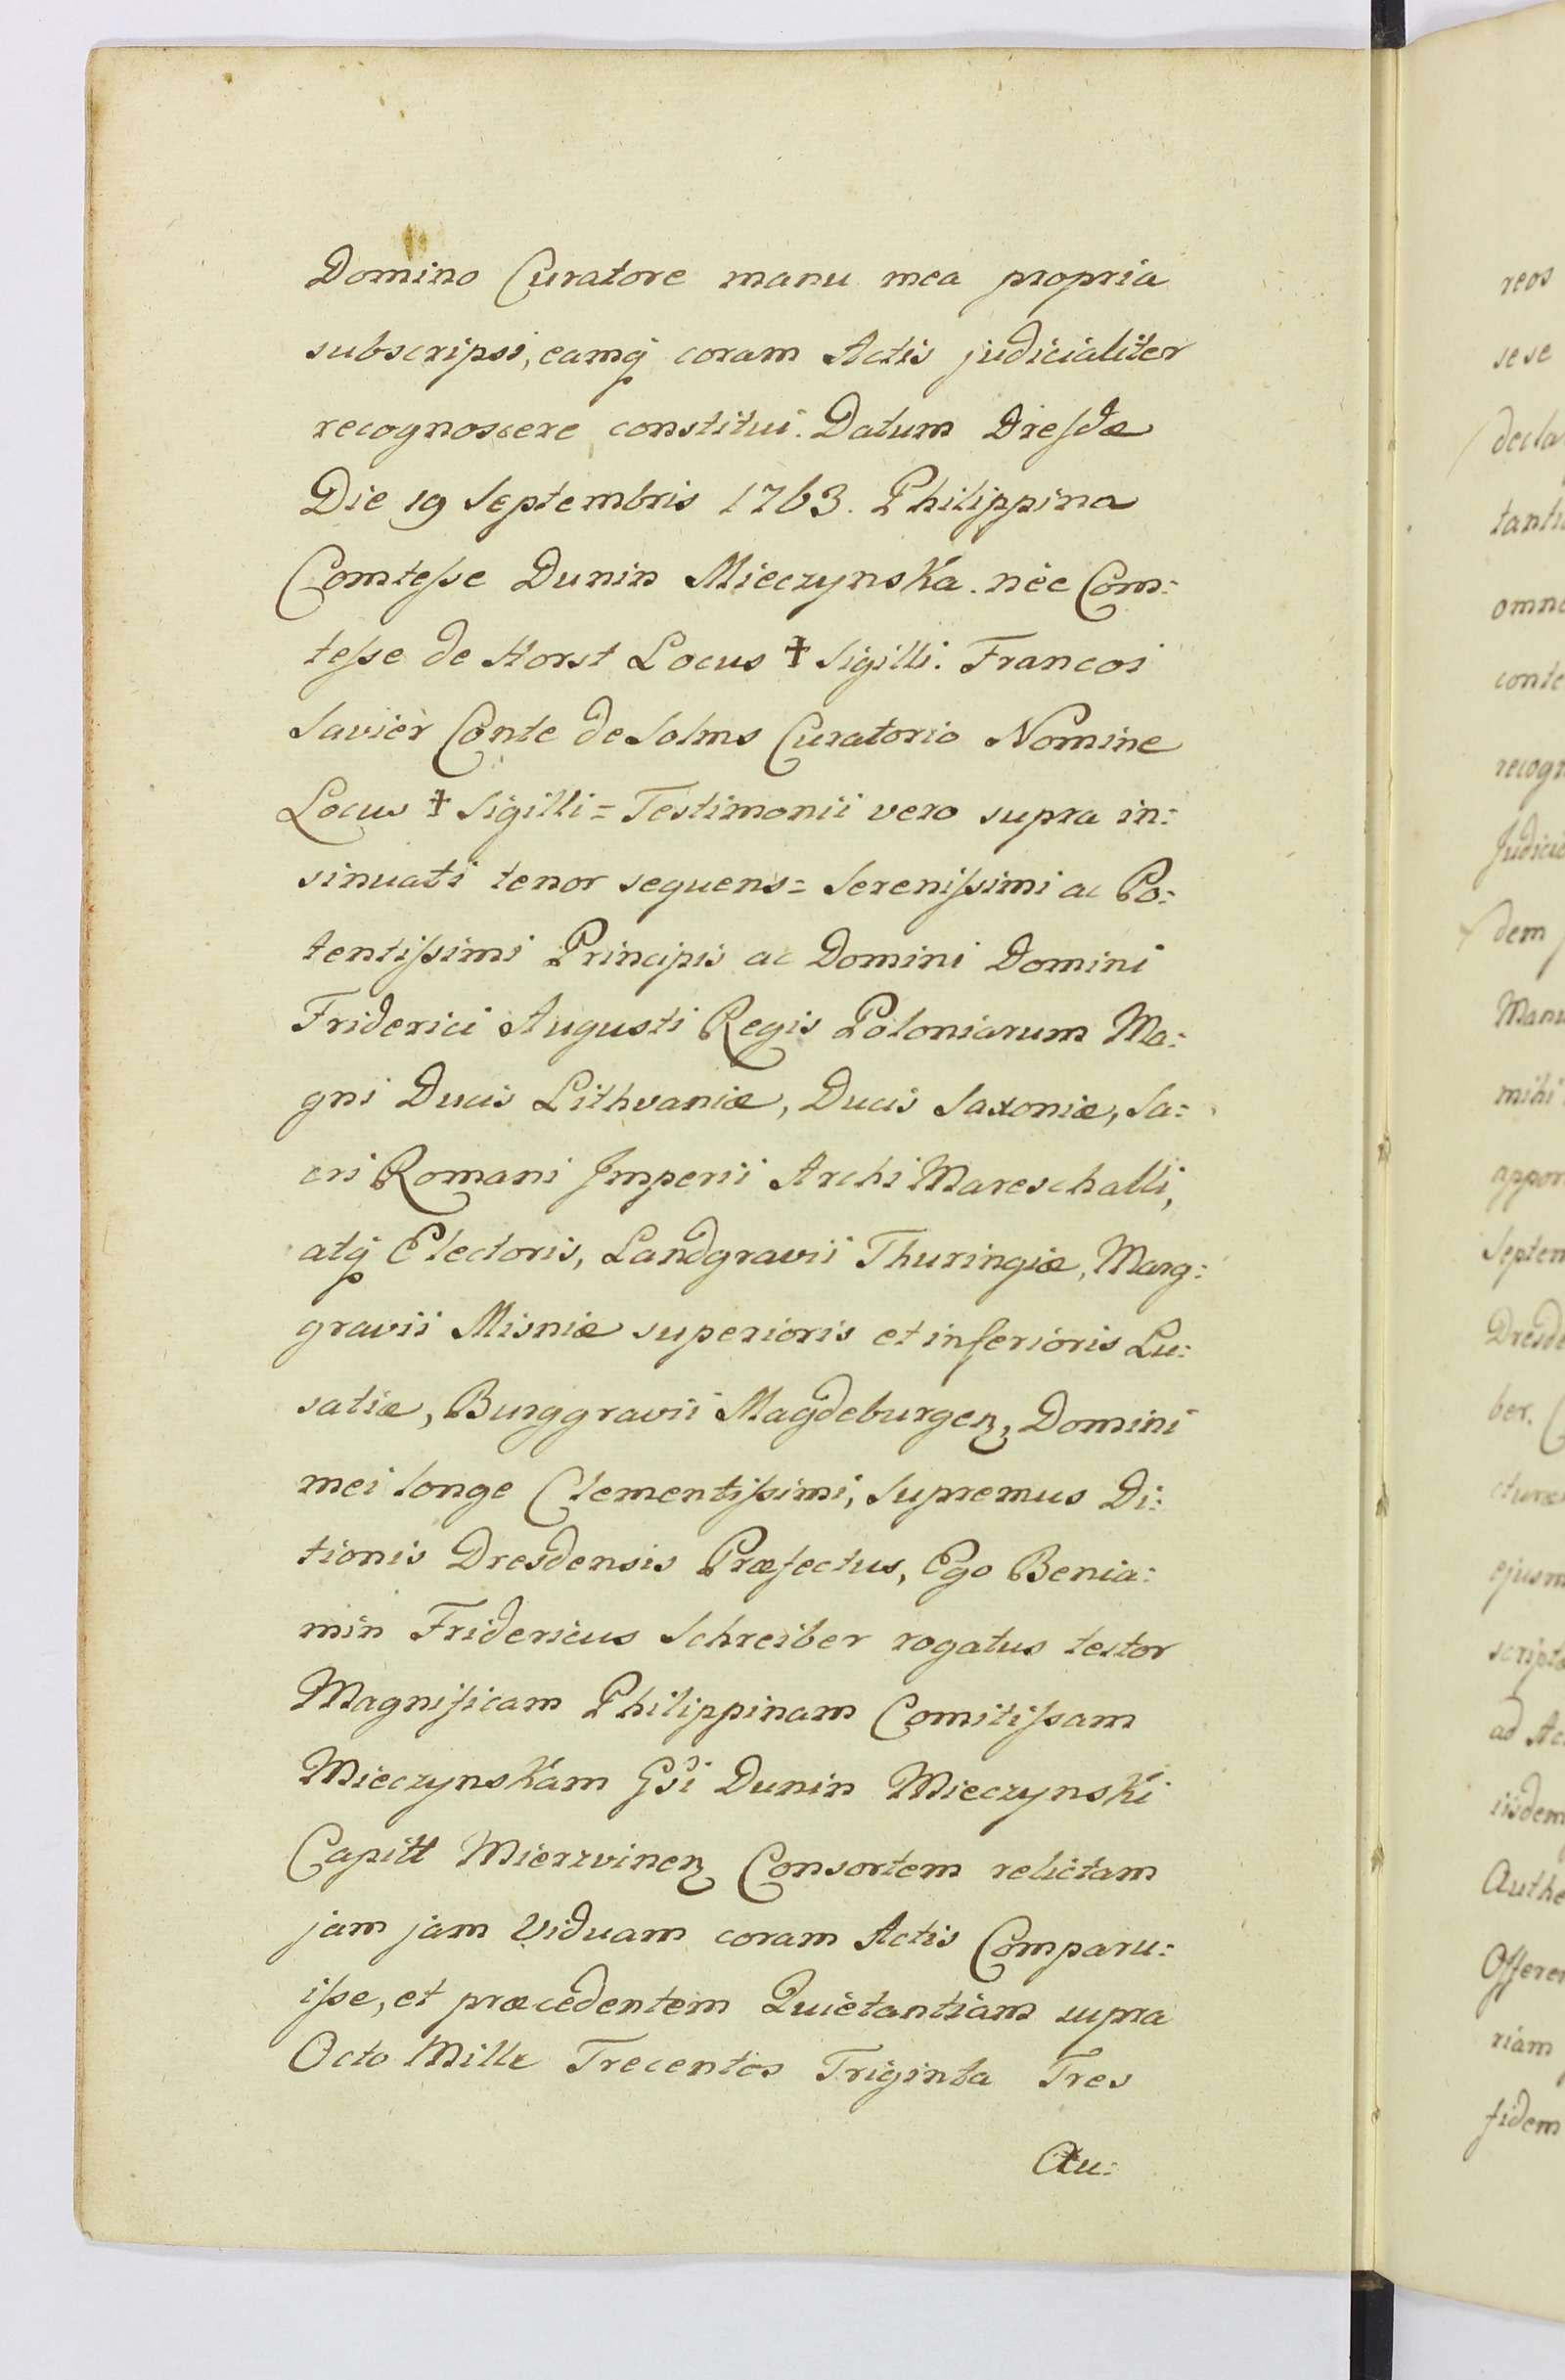 Domino Curatore manu mea propria
subscripsi, eamq coram Actis judicialiter
recognoscere constitui. Datum Dresdæ
Die 19 Septembris 1763. Philippina
Comtesse Dunin Mieczynska. née Com:
tesse de Horst Locus ✝ Sigilli. Francoi
Savièr Conte de Solms Curatorio Nomine
Locus ✝ Sigilli = Testimonii vero supra in:
sinuati tenor sequens = Serenissimi ac Po:
tentissimi Principis ac Domini Domini
Friderici Augusti Regis Poloniarum Ma:
gni Ducis Lithvaniæ, Ducis Saxoniæ, Sa:
cri Romani Imperii Archi Mareschalli,
atq Electoris, Landgravii Thuringiæ, Marg:
gravii Misniæ superioris et inferioris Lu:
satiæ, Burggravii Magdeburgen, Domini
mei longe Clementissimi, Supremus Di:
tionis Dresdensis Præfectus, Ego Benia:
min Fridericus Schreiber rogatus testor
Magnificam Philippinam Comitissam
Mieczynskam Gsi Dunin Mieczynski
Capitt Mierzvinen Consortem relictam
jam jam Viduam coram Actis Comparu:
isse, et præcedentem Quietantiam supra
Octo Mille Trecentos Triginta Tres
Au:
reos
sese
decla
tanti
omn
conte
recogn
Judici
dem
Manu
mihi
appon
Septem
Dresd
ber.
cturæ
ejusm
script
ad Ac
iisdem
Authe
Offere
riam
fidem